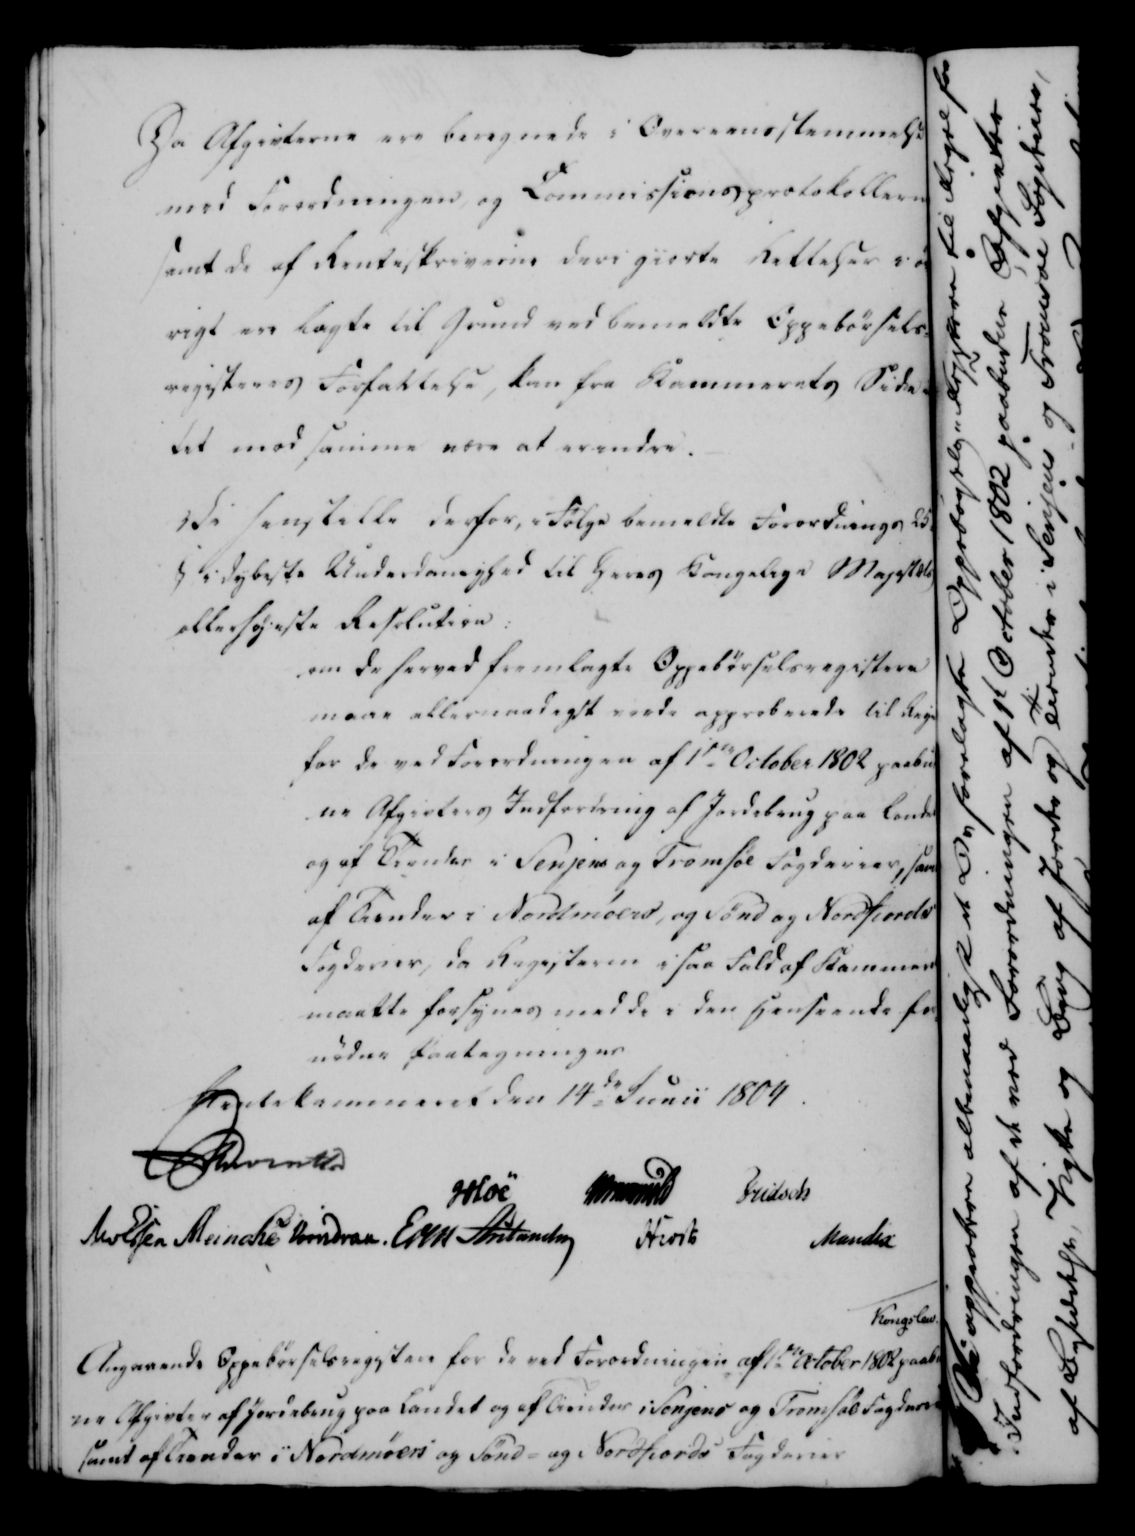 Da Afgivterne ere beregnede i Overeensstemmelse
med Forordningen, og Commissionsprotokollerne
samt de af Renteskriverne deri giorte Rettelser i ø
rigt ere lagte til Grund ved bemeldte Oppebørsels-
registeres Forfattelse, kan fra Kammerets Side in
tet mod samme være at erindre.
Vi henstille derfor, i Følge bemeldte Forordnings 25
§ i dybeste Underdanighed til Deres Kongelige Majestæts
allerhøieste Resolution:
om de herved fremlagte Oppebørselsregistere
maae allernaadigst vorde approberede til Regel
for de ved Forordningen af 1ste October 1802 paabud
ne Afgivters Indfordring af Jordebrug paa Landet
og af Tiender i Senjens og Tromsøe Fogderier, samt
af Tiender i Nordmøers, og Sønd og Nordfiords
Fogderier, da Registerne i saa Fald af Kammeret
maatte forsynes med de i den Henseende for-
nødne Paategninger
Rentekammeret den 14de Junii 1804.
Reventlow
Hoë Wormskiold Fridsch
Meinche Hiorth Mandix
Kongslew.
Angaaende Oppebørselsregistere for de ved Forordningen af 1ste October 1802 paabud
ne Afgivter af Jordebrug paa Landet og af Tiender i Senjens og Tromsøe Fogderier
samt af Tiender i Nordmøers og Sønd- og Nordfiords Fogderier
Vi approbere allernaadigst de Os forelagte Oppebørsels-Registere til Regel for
Indfordringen af de ved Forordningen af 1st October 1802 paabudne Afgivter
af og Brug af Jorder og Tiender i Senjens og Tromsøe Fogderier,